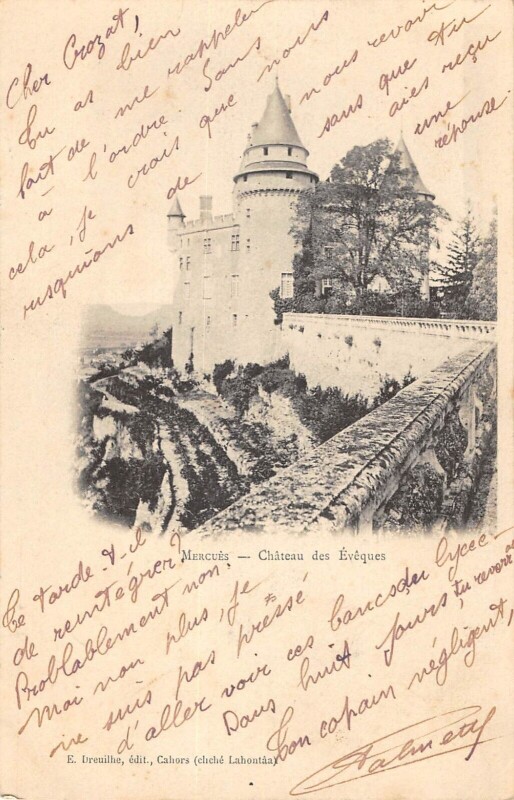 Cher Crozat,
Tu as bien
fait de me rappeler
à l'ordre. Sans
cela, je crois que nous
rusquions de nous revoir
sans que tu
aies reçu
une
réponse.
MERCUÈS — Château des Évêques
Te tarde-t-il
de reintégrer?
Problablement non.
Moi non plus, je
ne suis pas pressé
d'aller voir ces bancs du lycée
Dans huit jours, tu reverras
Ton copain négligent,
E. Dreuilhe, édit., Cahors (cliché Lahontâa)